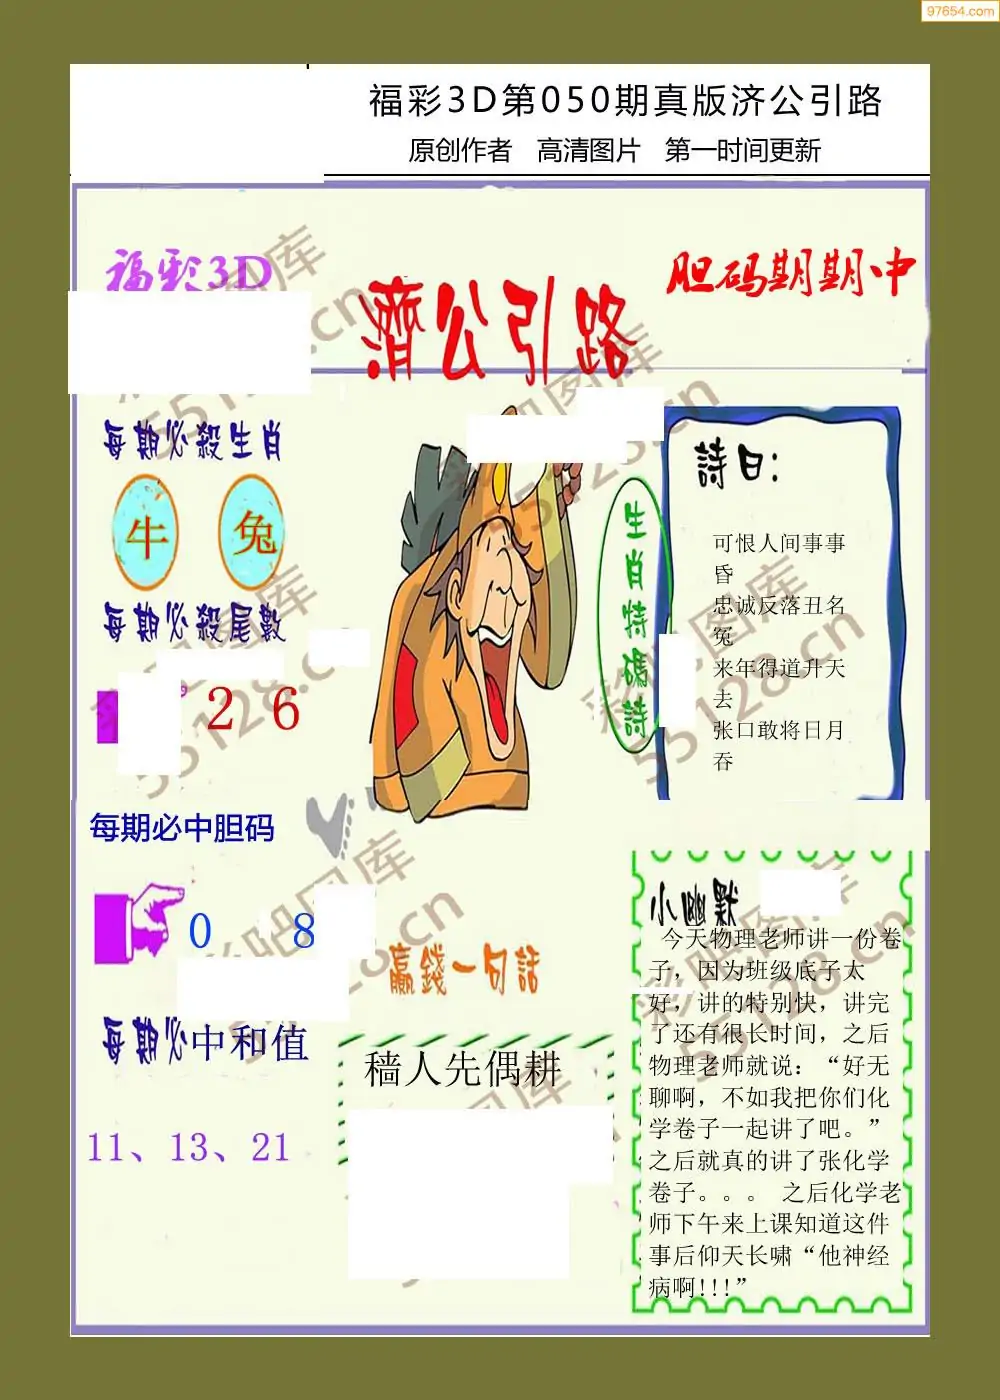 97654.com
福彩3D第050期真版济公引路
原创作者 高清图片 第一时间更新
福彩3D
濟公引路
胆码期期中
每期必殺生肖
牛 兔
每期必殺尾數
2 6
每期必中胆码
0 8
每期必中和值
11、13、21
生肖特碼詩
詩曰:
可恨人间事事
昏
忠诚反落丑名
冤
来年得道升天
去
张口敢将日月
吞
赢錢一句話
穑人先偶耕
小幽默
今天物理老师讲一份卷
子，因为班级底子太
好，讲的特别快，讲完
了还有很长时间，之后
物理老师就说：“好无
聊啊，不如我把你们化
学卷子一起讲了吧。”
之后就真的讲了张化学
卷子。。。 之后化学老
师下午来上课知道这件
事后仰天长啸“他神经
病啊!!!”
彩吧图库
55128.cn